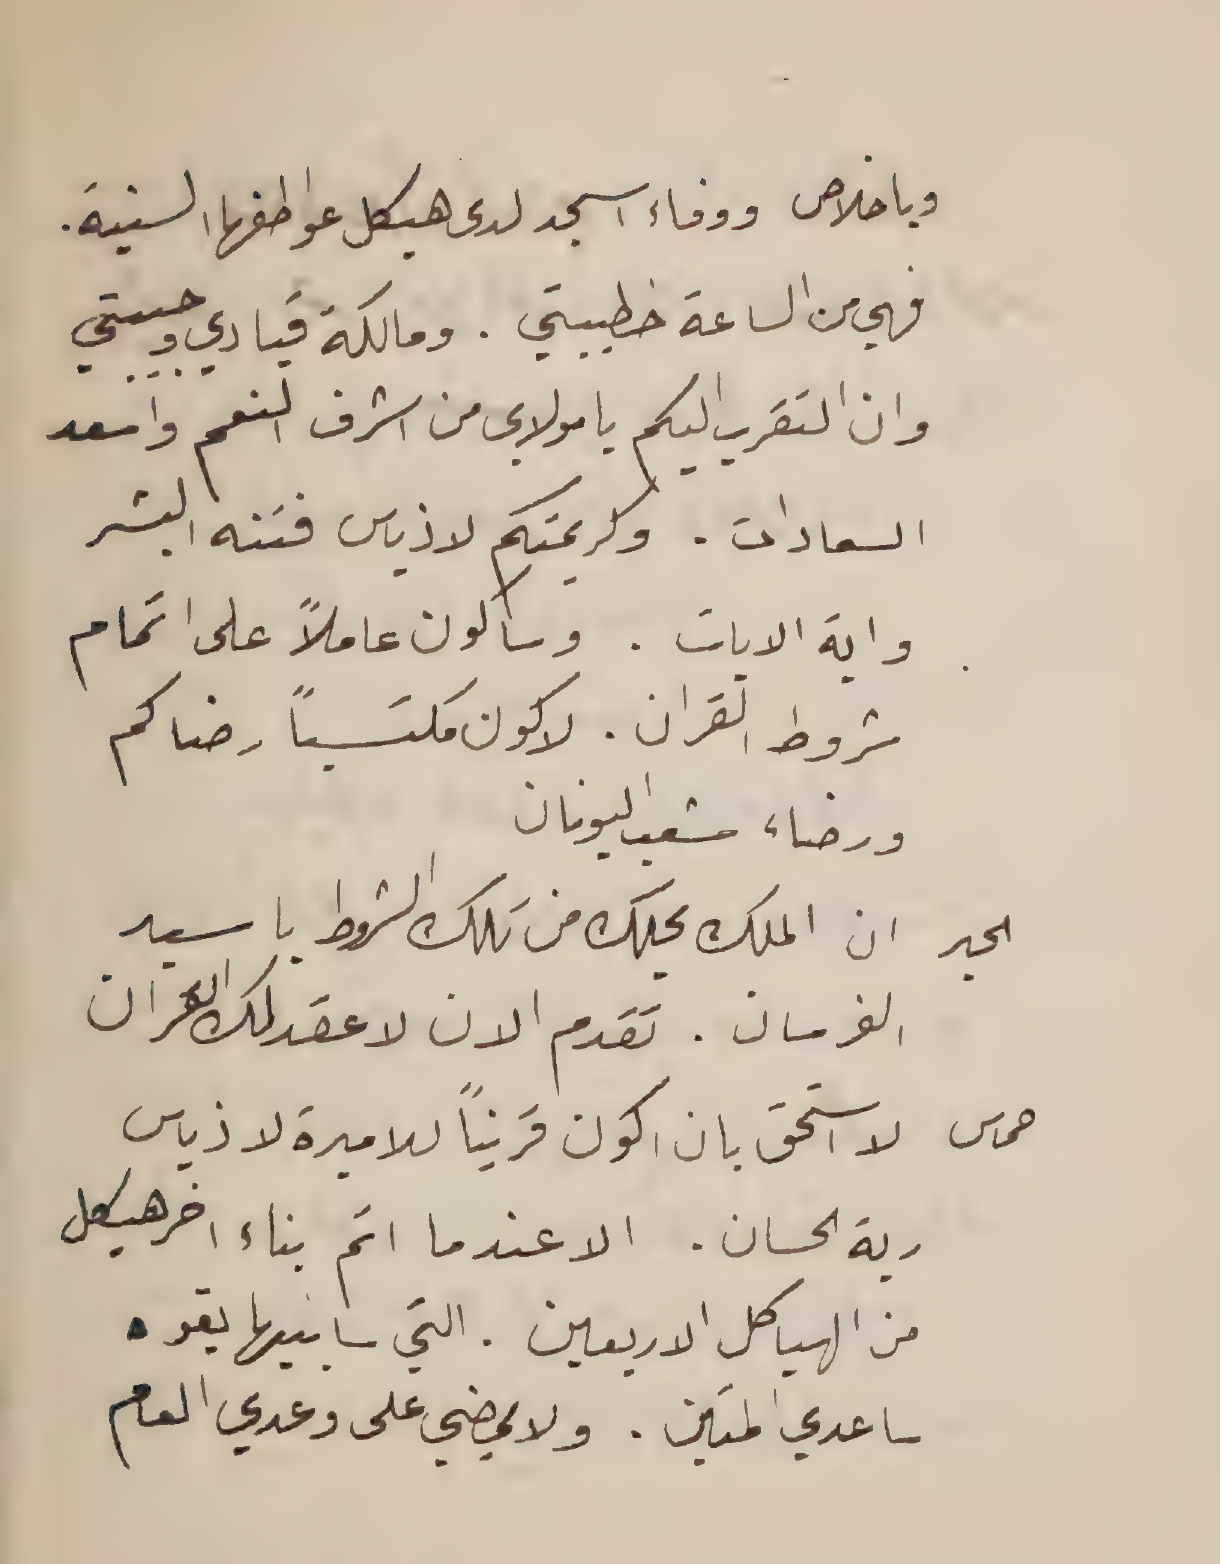 وباخلاص ووفاء اسجد لدى هيكل عواطفها السنية.
فهي من الساعة خطيبتي . ومالكة قيادي وحبيبتي
وان التقرب اليكم يا مولاي من اشرف النعم واسعد
السعادات . وكريمتكم لاذياس فتنه البشر
واية الايات . وساكون عاملاً على اتمام
شروط القران . لاكون مكتسباً رضاكم
ورضاء شعب اليونان
الحبر ان الملك يحلك من تلك الشروط يا سيد
الفرسان . تقدم الان لاعقد لك القران
حماس لا استحق بان اكون قريناً للاميرة لاذياس
ربة الحسان . الا عندما اتم بناء اخر هيكل
من الهياكل الاربعين . التي سابنيها بقوة
ساعدي المتين . ولا يمضي على وعدي العام